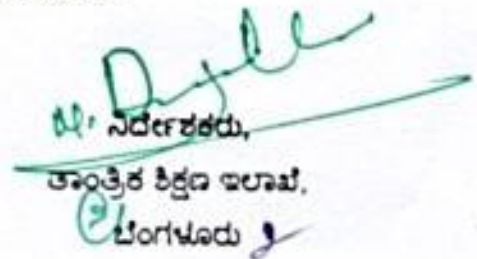 ನಿರ್ದೇಶಕರು,
ತಾಂತ್ರಿಕ ಶಿಕ್ಷಣ ಇಲಾಖೆ,
ಬೆಂಗಳೂರು